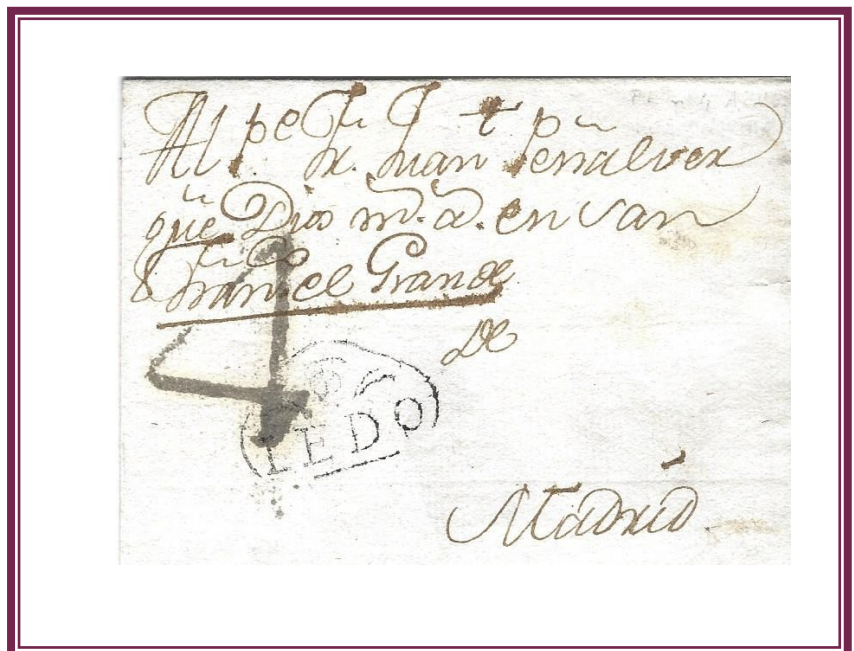 Al pe Fr. Juan Peñalver
que Dios m. a. en San
Franco el Grande
De
4
LEDO
Madrid